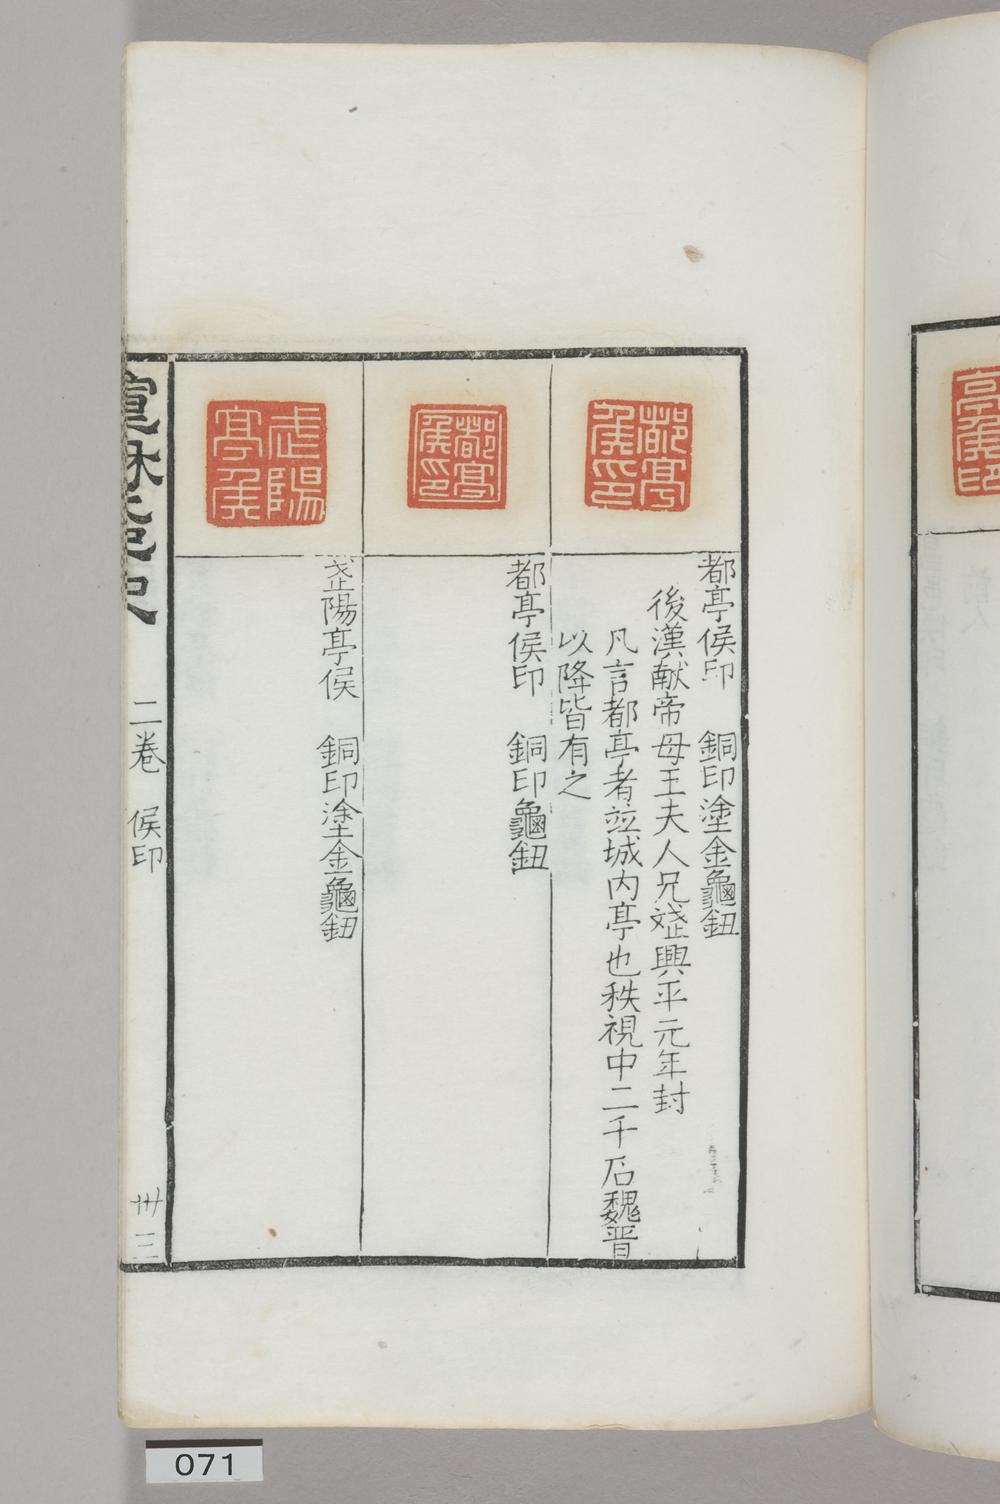 亭侯印
都亭侯印
都亭侯印　銅印塗金龜鈕
後漢献帝母王夫人兄斌興平元年封
凡言都亭者竝城内亭也秩視中二千石魏晋
以降皆有之
都亭侯印
都亭侯印　銅印龜鈕
武陽亭侯
武陽亭侯　銅印塗金龜鈕
二卷　侯印
卅三
071